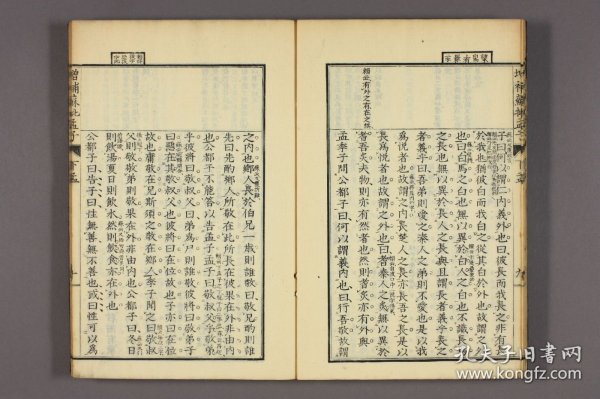 增補蘇批孟子
子曰何以謂仁內義外也曰彼長而我長之非有長
於我也猶彼白而我白之從其白於外也故謂之外
也曰白馬之白也無以異於白人之白也不識長馬之
長也無以異於長人之長與且謂長者義乎長之
者義乎曰吾弟則愛之秦人之弟則不愛也是以我
為悅者也故謂之內長楚人之長亦長吾之長是以
長為悅者也故謂之外也曰耆秦人之炙無以異於
耆吾炙夫物則亦有然者也然則耆炙亦有外與
孟季子問公都子曰何以謂義內也曰行吾敬故謂
之內也鄉人長於伯兄一歲則誰敬曰敬兄酌則誰
先曰先酌鄉人所敬在此所長在彼果在外非由內
也公都子不能答以告孟子孟子曰敬叔父乎敬弟
乎彼將曰敬叔父曰弟為尸則誰敬彼將曰敬弟子
曰惡在其敬叔父也彼將曰在位故也子亦曰在位
故也庸敬在兄斯須之敬在鄉人季子聞之曰敬叔
父則敬敬弟則敬果在外非由內也公都子曰冬日
則飲湯夏日則飲水然則飲食亦在外也
公都子曰告子曰性無善無不善也或曰性可以為
增補蘇批孟子
孔夫子旧书网
www.kongfz.com